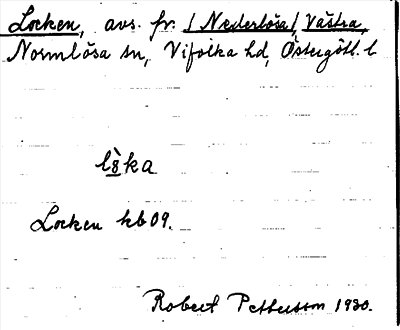 Locken, avs. fr. /Nederlösa/, Västra,
Normlösa sn, Vifolka hd, Östergötl. l
Locken kb 09.
Robert Pettersson 1930.